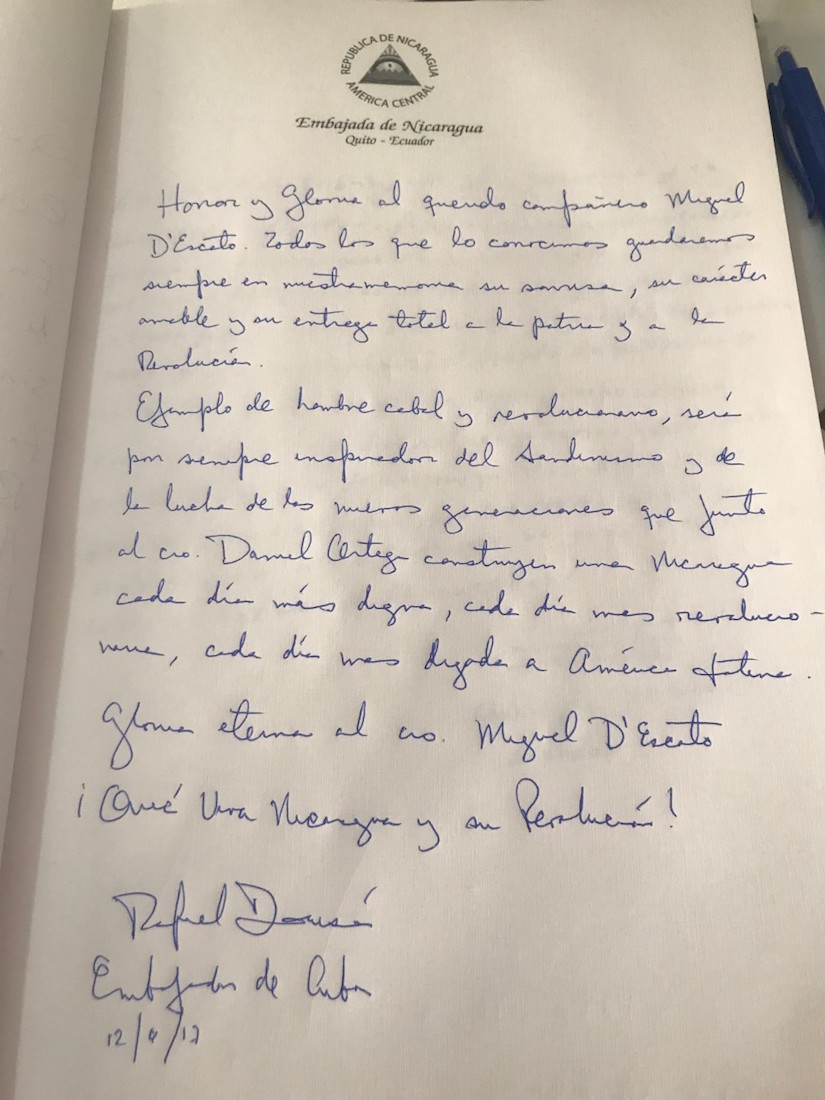 REPUBLICA DE NICARAGUA
AMERICA CENTRAL
Embajada de Nicaragua
Quito - Ecuador
Honor y Gloria al querido compañero Miguel
D'Escoto. Todos los que lo conocimos guardaremos
siempre en nuestra memoria su sonrisa, su carácter
amable y su entrega total a la patria y a la
Revolución.
Ejemplo de hombre cabal y revolucionario, será
por siempre inspirador del Sandinismo y de
la lucha de las nuevas generaciones que junto
al cro. Daniel Ortega construyen una Nicaragua
cada día más digna, cada día mas revolucio-
naria, cada día mas ligada a América Latina.
Gloria eterna al cro. Miguel D'Escoto
¡Qué Viva Nicaragua y su Revolución!
Rafael Dausá
Embajador de Cuba